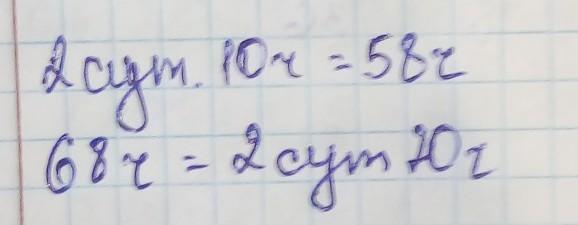 2 сут. 10ч = 58ч
68ч = 2 сут 20ч